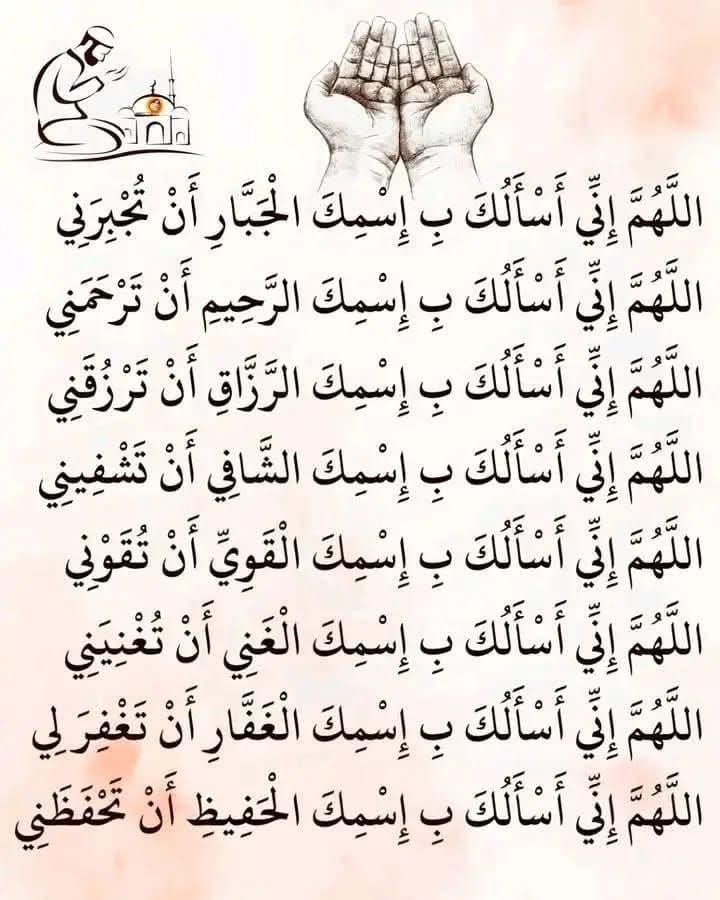 اللَّهُمَّ إِنِّي أَسْأَلُكَ بِ إِسْمِكَ الْجَبَّارِ أَنْ تُجْبِرَنِي
اللَّهُمَّ إِنِّي أَسْأَلُكَ بِ إِسْمِكَ الرَّحِيمِ أَنْ تَرْحَمَنِي
اللَّهُمَّ إِنِّي أَسْأَلُكَ بِ إِسْمِكَ الرَّزَّاقِ أَنْ تَرْزُقَنِي
اللَّهُمَّ إِنِّي أَسْأَلُكَ بِ إِسْمِكَ الشَّافِي أَنْ تَشْفِينِي
اللَّهُمَّ إِنِّي أَسْأَلُكَ بِ إِسْمِكَ الْقَوِيِّ أَنْ تُقَوْنِي
اللَّهُمَّ إِنِّي أَسْأَلُكَ بِ إِسْمِكَ الْغَنِي أَنْ تُغْنِيَنِي
اللَّهُمَّ إِنِّي أَسْأَلُكَ بِ إِسْمِكَ الْغَفَّارِ أَنْ تَغْفِرَ لِي
اللَّهُمَّ إِنِّي أَسْأَلُكَ بِ إِسْمِكَ الْحَفِيظِ أَنْ تَحْفَظَنِي